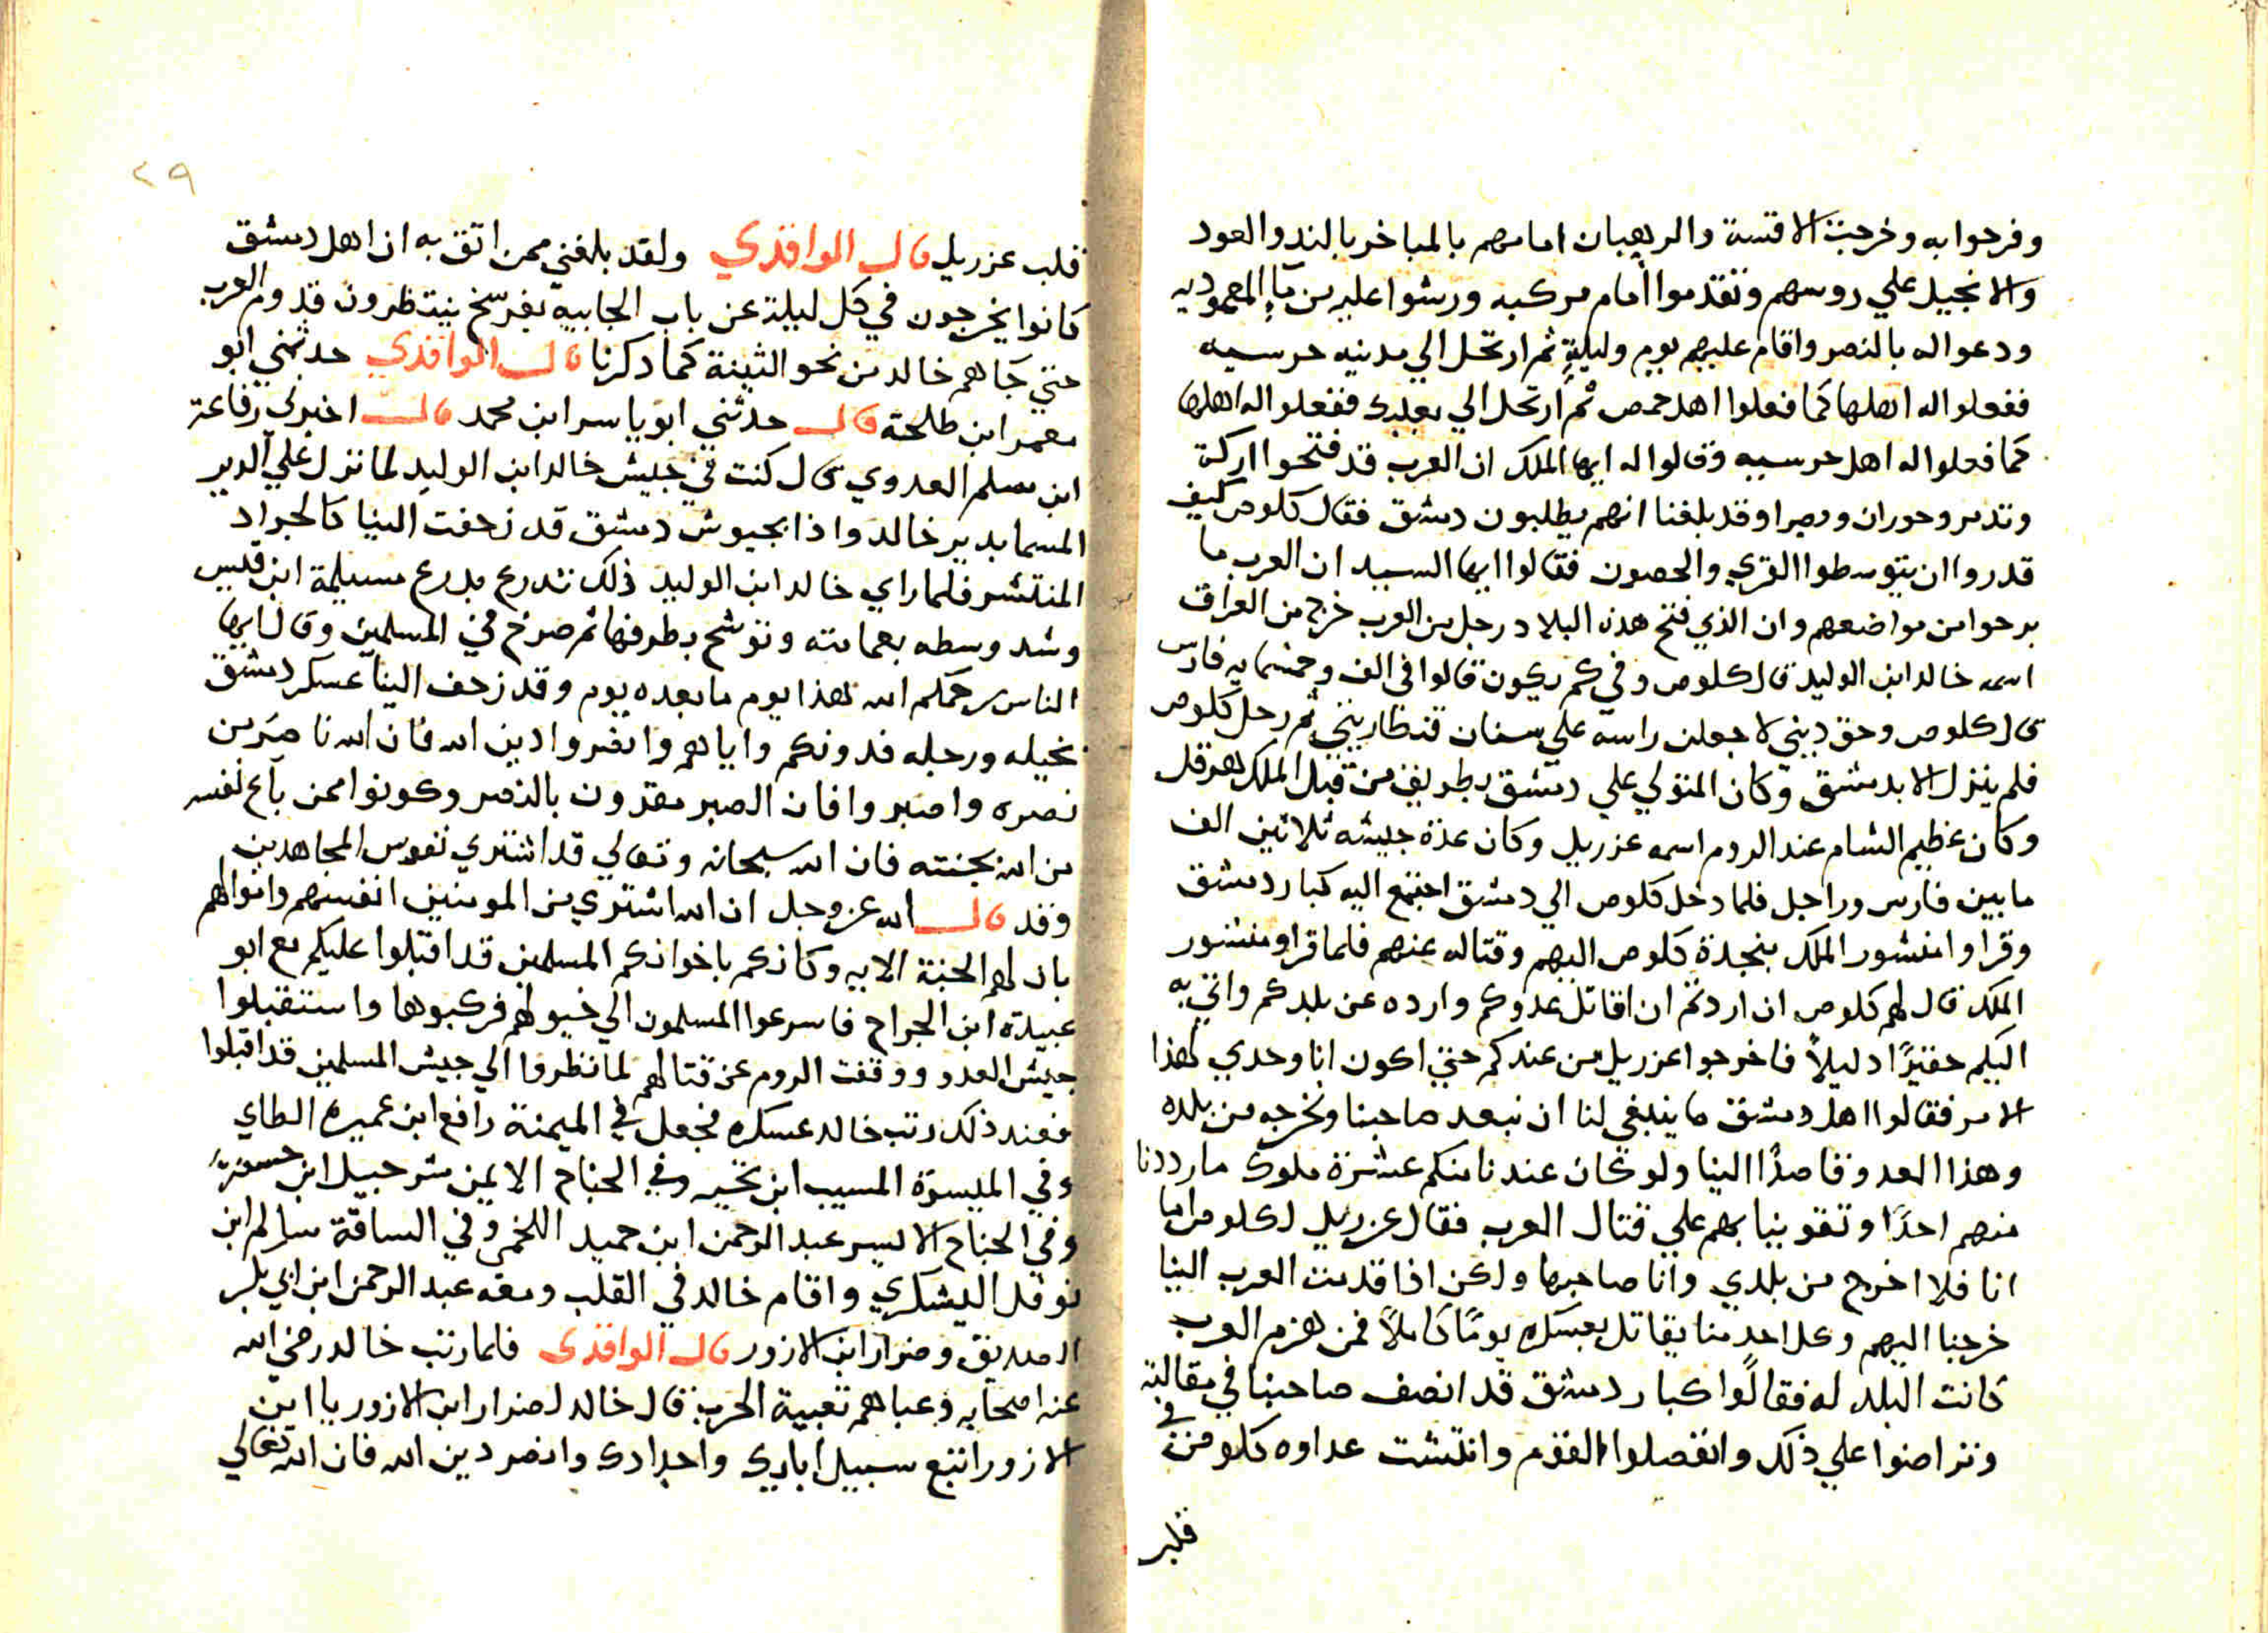 وفرحوا به وخرجت الاقسة والرهبان امامهم بالمباخر بالند والعود
والانجيل علي روسهم وتقدموا أمام مركبه ورشوا عليه من مآءِ المعموديه
ودعوا له بالنصر واقام عليهم يوم وليلةٍ ثم ارتحل الي مدينه حرسيه
ففعلوا له اهلها كما فعلوا اهل حمص ثم ارتحل الي بعلبك ففعلوا له اهلها
كما فعلوا له اهل حرسيه وقالوا له ايها الملك ان العرب قد فتحوا اركة
وتدمر وحوران وبصرا وقد بلغنا انهم يطلبون دمشق فقال كلوص كيف
قدروا ان يتوسطوا القري والحصون فقالوا ايها السيد ان العرب ما
برحوا من مواضعهم وان الذي فتح هذه البلاد رجل من العرب خرج من العراق
اسمه خالد ابن الوليد قال كلوص وفي كم يكون قالوا في الف وخمسمايه فارس
قال كلوص وحق ديني لاجعلن راسه علي سنان قنطاريتي ثم رحل كلوص
فلم ينزل الا بدمشق وكان المتولي علي دمشق بطريق من قبل الملك هرقل
وكان عظيم الشام عند الروم اسمه عزريل وكان عدة جيشه ثلاثين الف
ما بين فارس وراجل فلما دخل كلوص الي دمشق اجتمع اليه كبار دمشق
وقراوا منشور الملك بنجدة كلوص اليهم وقتاله عنهم فلما قراو منشور
الملك قال لهم كلوص ان اردتم ان اقاتل عدوكم وارده عن بلدكم واتي به
اليكم حقيرًا دليلاً فاخرجوا عزريل من عندكم حتي اكون انا وحدي لهذا
الامر فقالوا اهل دمشق ما ينبغي لنا ان نبعد صاحبنا ونخرجه من بلده
وهذا العدو قاصدًا الينا ولو كان عندنا منكم عشرة ملوك ما رددنا
منهم احدًا وتقوينا بهم علي قتال العرب فقال عزريل لكلوص اما
انا فلا اخرج من بلدي وانا صاحبها ولكن اذا قدمت العرب الينا
خرجنا اليهم وكل احد منا يقاتل بعسكره يومًا كاملاً فمن هزم العرب
كانت البلد له فقالوا كبار دمشق قد انصف صاحبنا في مقالته
وتراضوا علي ذلك وانفصلوا القوم وانتشت عداوه كلوص في
قلب
٢٩
قلب عزريل قال الواقدي ولقد بلغني ممن اتق به ان اهل دمشق
كانوا يخرجون في كل ليلة عن باب الجابيه بفرسخ ينتظرون قدوم العرب
حتي جَاهم خالد من نحو الثينة كما دكرنا قال الواقدي حدثني ابو
معمر ابن طلحة قال حدثني ابو ياسر ابن محمد قال اخبرني رفاعة
ابن مسلم العدوي قال كنت في جيش خالد ابن الوليد لما نزل علي الدير
المسما بدير خالد واذا بجيوش دمشق قد زحفت الينا كالجراد
المنتشر فلما راي خالد ابن الوليد ذلك تدرع بدرع مسيلمة ابن قيس
وشد وسطه بعمامته وتوشح بطرفها ثم صرخ في المسلمين وقال ايها
الناس رحمكم الله هذا يوم ما بعده يوم وقد زحف الينا عسكر دمشق
بخيله ورجله فدونكم واياهم وانصروا دين الله فان الله ناصر من
نصره واصبروا فان الصبر مقرون بالنصر وكونوا ممن باع نفسه
من الله بجنته فان الله سبحانه وتعالي قد اشتري نفوس المجاهدين
وقد قال الله عز وجل ان الله اشتري من المومنين انفسهم واموالهم
بان لهم الجنة الايه وكانكم باخوانكم المسلمين قد اقبلوا عليكم مع ابو
عبيدة ابن الجراح فاسرعوا المسلمون الي خيولهم فركبوها واستقبلوا
جيش العدو ووقفت الروم عن قتالهم لما نظروا الي جيش المسلمين قد اقبلوا
فعند ذلك رتب خالد عسكره فجعل في الميمنة رافع ابن عميره الطاي
وفي الميسرة المسيب ابن نخيبه وفي الجناح الايمن شرحبيل ابن حسنة
وفي الجناح الايسر عبد الرحمن ابن حميد اللخمي وفي الساقة سالم ابن
نوفل اليشكري واقام خالد في القلب ومعه عبد الرحمن ابن ابي بكر
الصديق وضرار ابن الازور قال الواقدي فلما رتب خالد رضي الله
عنه اصحابه وعباهم تعبية الحرب قال خالد لضرار ابن الازور يا ابن
الازور اتبع سبيل اباديك واجدادك وانصر دين الله فان الله تعالي